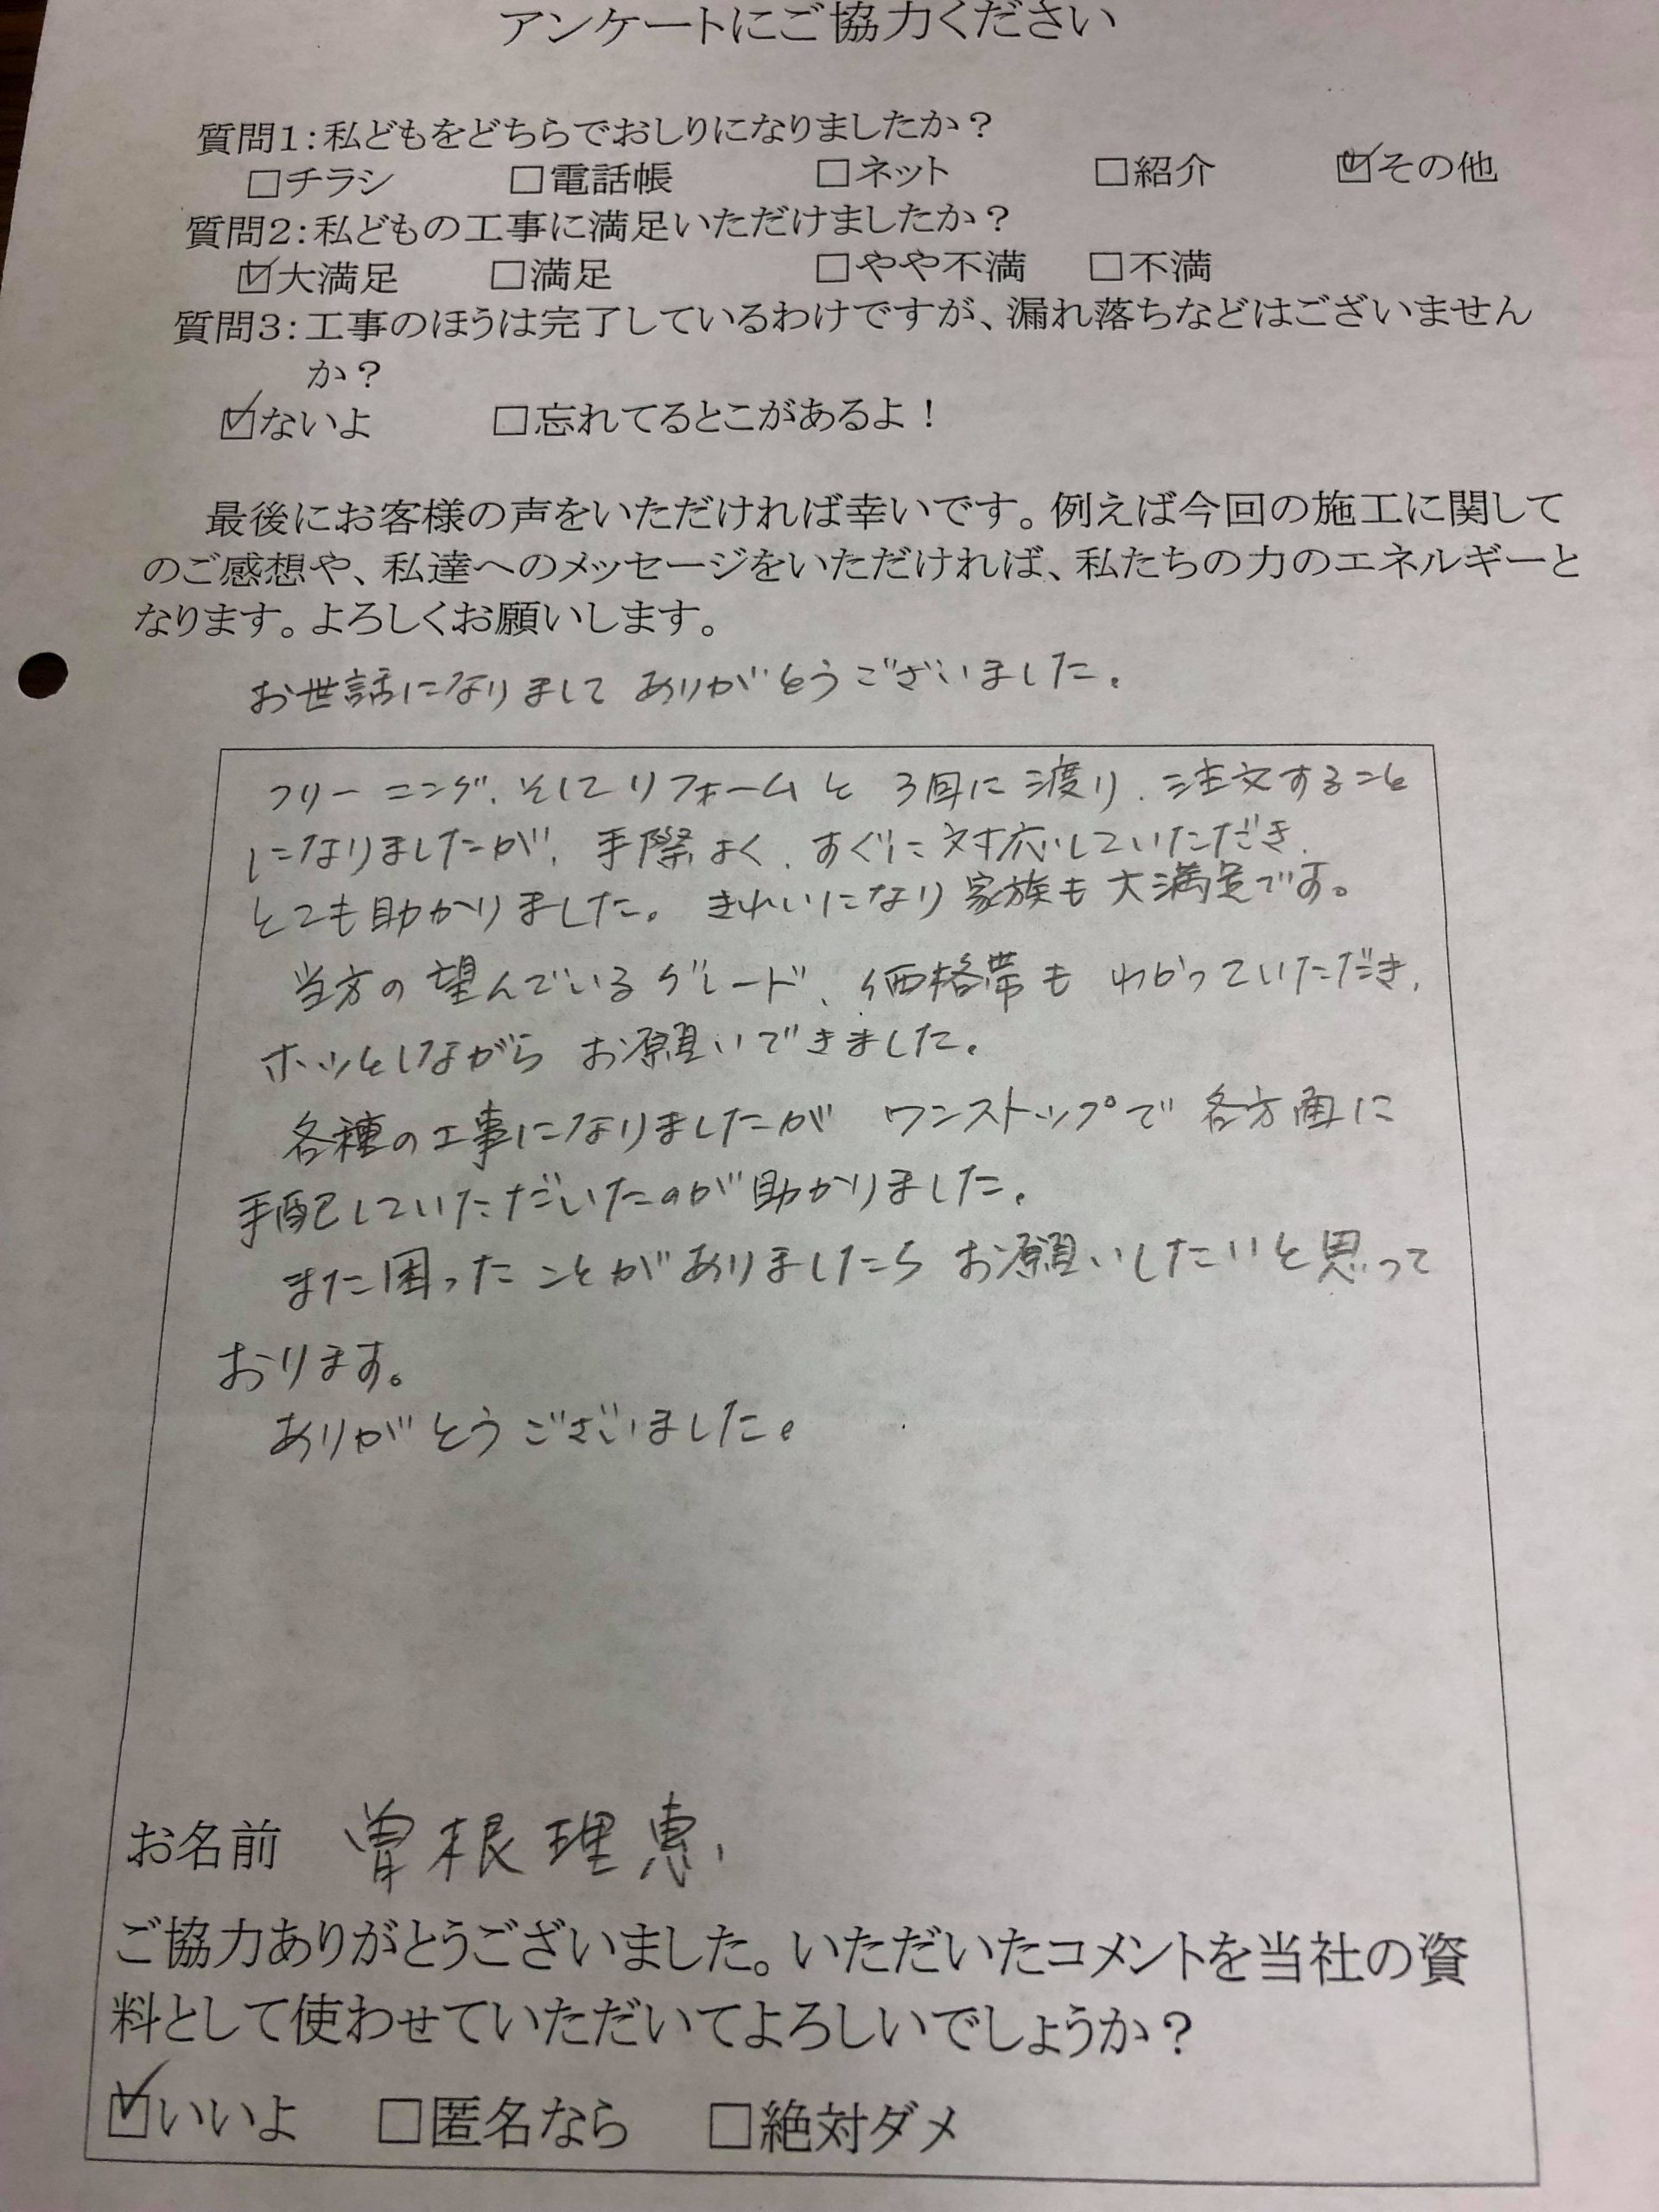 アンケートにご協力ください
質問1：私どもをどちらでおしりになりましたか？
□チラシ □電話帳 □ネット □紹介 ☑その他
質問2：私どもの工事に満足いただけましたか？
☑大満足 □満足 □やや不満 □不満
質問3：工事のほうは完了しているわけですが、漏れ落ちなどはございません
か？
☑ないよ □忘れてるとこがあるよ！
最後にお客様の声をいただければ幸いです。例えば今回の施工に関して
のご感想や、私達へのメッセージをいただければ、私たちの力のエネルギーと
なります。よろしくお願いします。
お世話になりまして ありがとうございました。
クリーニング、そしてリフォームと 3回に渡り、注文すること
になりましたが、手際よく、すぐに対応していただき、
とても助かりました。きれいになり家族も大満足です。
当方の望んでいるグレード、価格帯も わかっていただき、
ホッとしながら お願いできました。
各種の工事になりましたが ワンストップで 各方面に
手配していただいたのが助かりました。
また困ったことがありましたら お願いしたいと思って
おります。
ありがとうございました。
お名前 曽根理恵
ご協力ありがとうございました。いただいたコメントを当社の資
料として使わせていただいてよろしいでしょうか？
☑いいよ □匿名なら □絶対ダメ